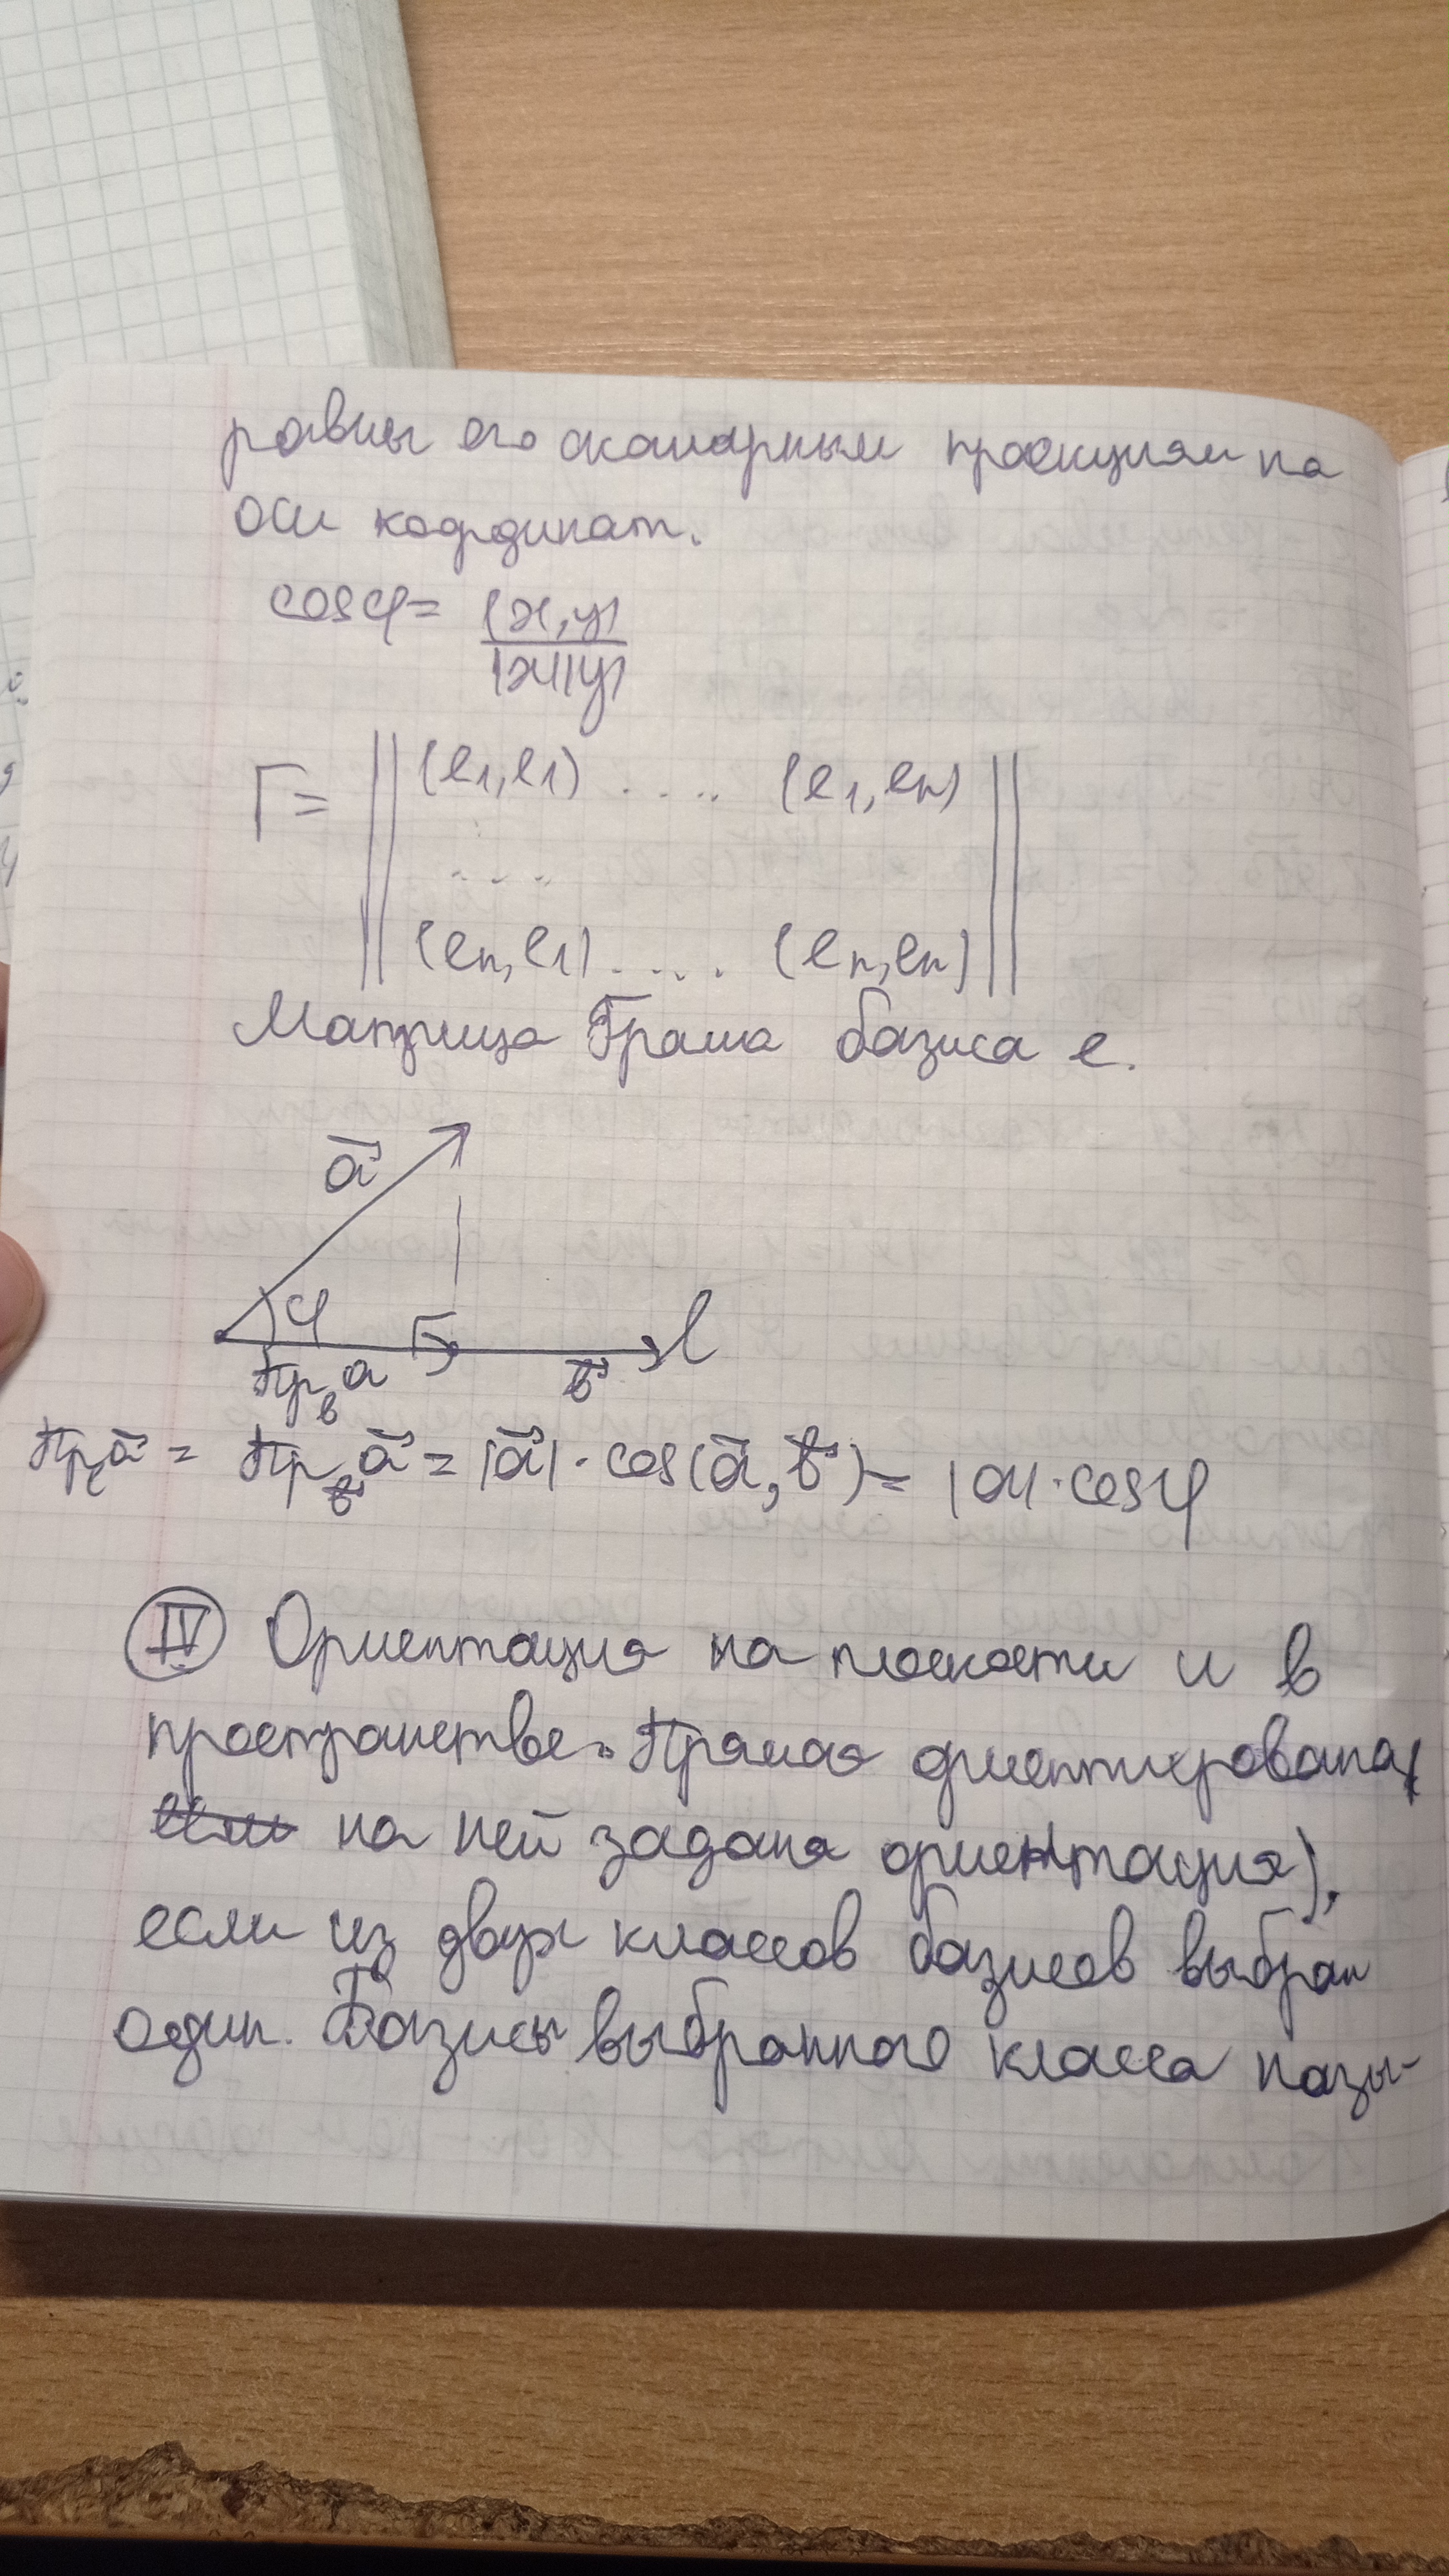 равны его скалярным проекциям на
оси координат.
cosφ = (x,y) / |x||y|
Г = || (e1,e1) .... (e1,en)
....
(en,e1) .... (en,en) ||
Матрица Грама базиса e.
a⃗
φ
l
Пр_b a
b⃗
Пр_l a⃗ = Пр_b⃗ a⃗ = |a⃗| · cos(a⃗, b⃗) = |a| · cosφ
IV Ориентация на плоскости и в
пространстве. Прямая ориентирована(
на ней задана ориентация),
если из двух классов базисов выбран
один. Базисы выбранного класса назы-